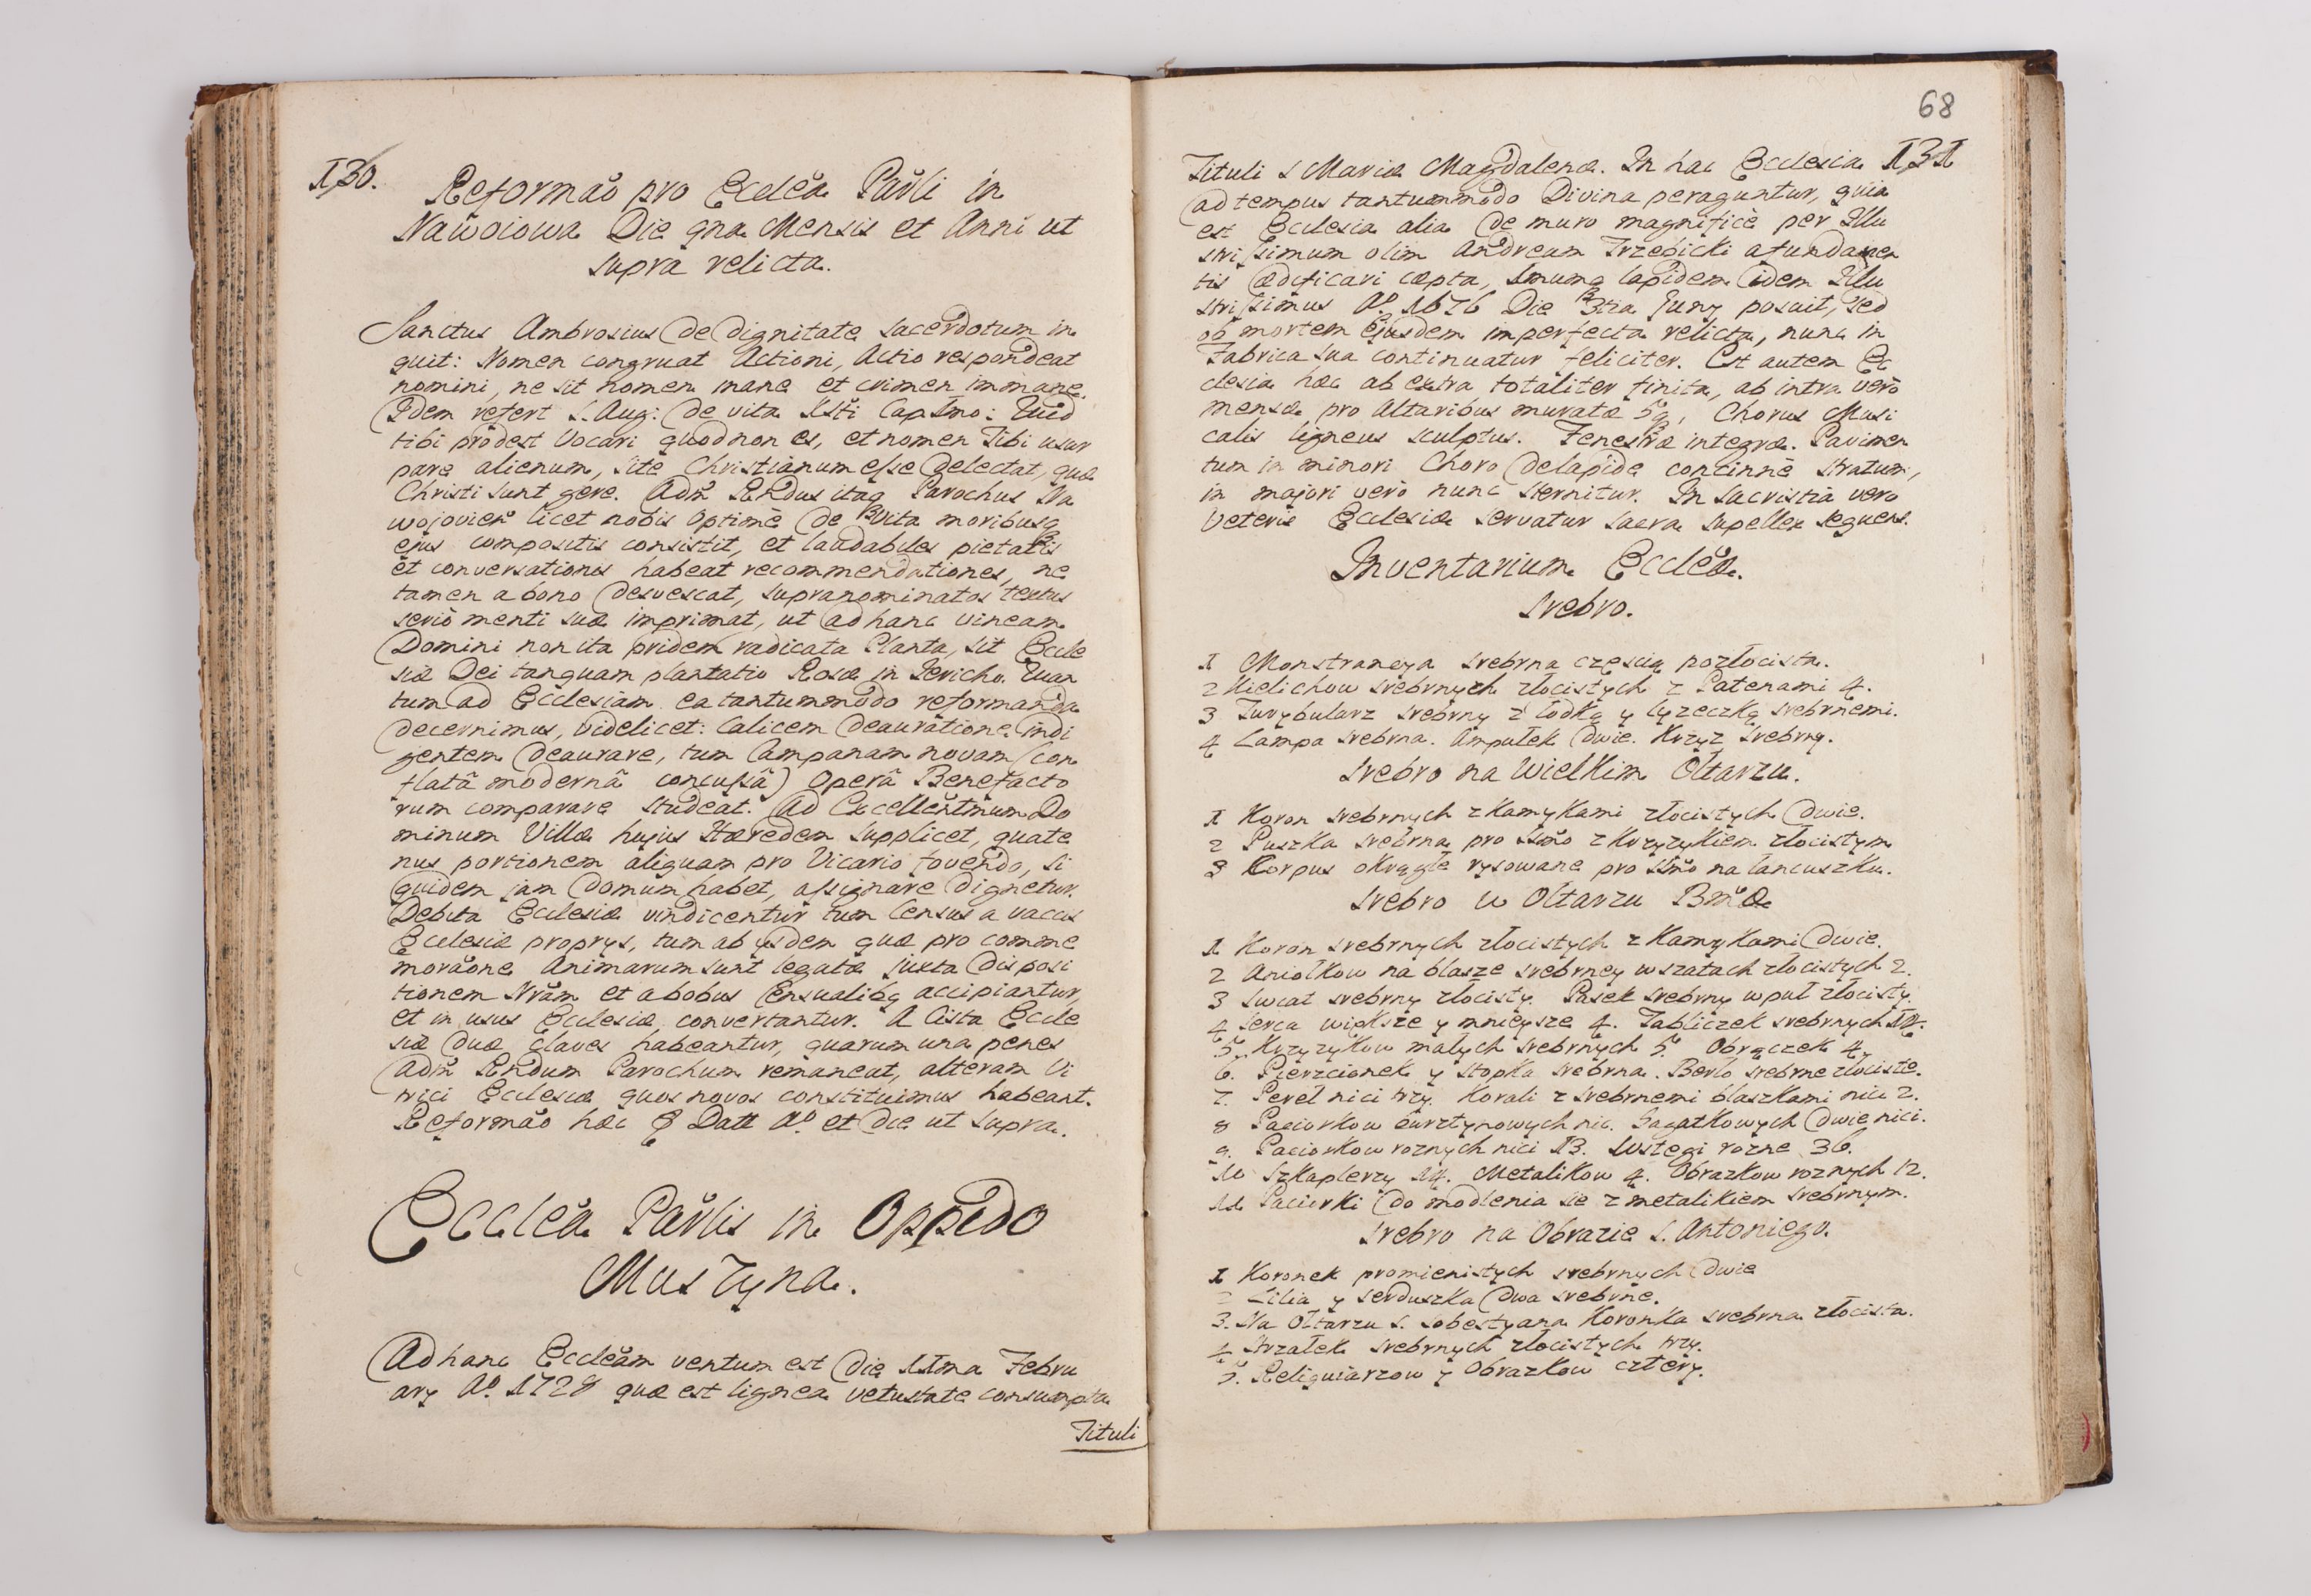 130.
Reformao pro Ecclea Pauli in
Nawoiowa Die qna Mensis et Anni ut
supra relicta.
Sanctus Ambrosius de Dignitate Sacerdotum in
quit: Nomen congruat Actioni, Actio respondeat
nomini, ne sit nomen inane et crimen immane.
Idem refert S. Aug: de vita Xsti Cap 1mo: Quid
tibi prodest vocari quod non es, et nomen Tibi usur
pare alienum, si te Christianum esse delectat, quæ
Christi sunt gere. Adm Rndus itaq Parochus Na
wojovien licet nobis optimè de Vita moribusq
ejus compositis consistit, et laudabiles pietatis
et conversationis habeat recommendationes, ne
tamen a bono desvescat, supranominatos textus
seriò menti suæ imprimat, ut ad hanc vineam
Domini non ita pridem radicata Planta, sit Eccle
siæ Dei tanquam plantatio Rosæ in Jericho. Quan
tum ad Ecclesiam ea tantummodo reformanda
decernimus, videlicet: Calicem deauratione indi
gentem deaurare, tum Campanam novam (con
flatâ modernâ concussâ) Operâ Benefacto
rum comparare studeat. Ad Excellentmum Do
minum Villæ hujus Hæredem supplicet, quate
nus portionem aliquam pro Vicario fovendo, si
quidem jam Domum habet, assignare dignetur.
Debita Ecclesiæ vindicentur tum Census a vaccis
Ecclesiæ proprys, tum ab ysdem quæ pro comme
moraone Animarum sunt legatæ juxta disposi
tionem Nram et a bobus Censualibq accipiantur,
et in usus Ecclesiæ convertantur. A Cista Eccle
siæ duæ claves habeantur, quarum una penes
Adm Rndum Parochum remaneat, alteram Vi
trici Ecclesiæ quos novos constituimus habeant.
Reformao hæc Datt Ao et die ut supra.
Ecclea Parlis in Oppido
Muszyna.
Ad hanc Eccleam ventum est Die 11ma Febru
ary Ao 1728 quæ est lignea vetustate consumpta
Tituli
68
131
Tituli S Mariæ Magdalenæ. In hac Ecclesia
ad tempus tantummodo Divina peraguntur, quia
est Ecclesia alia de muro magnificè per Illu
strissimum olim Andream Trzebicki a fundamen
tis ædificari cæpta, 1mumq lapidem idem Illu
strissimus Ao 1676 Die 3tia Juny posuit, sed
ob mortem ejusdem imperfecta relicta, nunc in
Fabrica sua continuatur feliciter. Est autem Ec
clesia hæc ab extra totaliter finita, ab intra verò
mensæ pro Altaribus muratæ 5q, Chorus Musi
calis ligneus sculptus. Fenestræ integræ. Pavimen
tum in minori Choro de lapide continnè stratum,
in majori verò nunc sternitur. In Sacristia vero
Veteris Ecclesiæ servatur sacra supellex sequens.
Inventarium Eccleæ.
Srebro.
1 Monstrancya srebrna częscią pozłocista.
2 Kielichow srebrnych złocistych z Patenami 4.
3 Turybularz srebrny z łodką y łyzeczką srebrnemi.
4 Lampa srebrna. Ampułek dwie. Krzyz srebrny.
Srebro na Wielkim Ołtarzu.
1 Koron srebrnych z kamykami złocistych dwie.
2 Puszka srebrna pro Ssmo z krzyzykiem złocistym
3 Corpus okrągłe rysowane pro Ssmo na lancuszku.
Srebro w Ołtarzu Bmæ
1 Koron srebrnych złocistych z kamykami dwie.
2 Aniołkow na blasze srebrney w szatach złocistych 2.
3 Swiat srebrny złocisty. Pasek srebrny w puł złocisty.
4 Serca większe y mnieysze 4. Tabliczek srebrnych 14.
5. Krzyzykow małych srebrnych 5. Obrączek 4.
6. Pierzcionek y stopka srebrna. Berło srebrne złociste.
7. Pereł nici trzy. Korali z srebrnemi blaszkami nici 2.
8 Paciorkow bursztynowych nic. Gagatkowych dwie nici.
9. Paciorkow roznych nici 13. Wstęgi rozne 36.
10 Szkaplerzy 14. Metalikow 4. Obrazkow roznych 12.
11 Paciorki do modlenia sie z metalikiem srebrnym.
Srebro na Obrazie S. Antoniego.
1 Koronek promienistych srebrnych dwie
2 Lilia y serduszka dwa srebrne.
3. Na Ołtarzu S. Sobestyana Koronka srebrna złocista.
4 Strzałek srebrnych złocistych trzy.
5. Reliquiarzow y Obrazkow cztery.